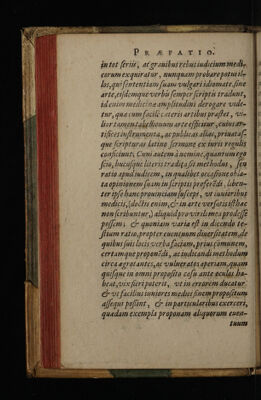 PRÆFATIO.
in tot seriis, ac grauibus rebus iudicium medi-
corum exquiratur, nunquam probare potui il-
los, qui sententiam suam vulgari idiomate, sine
arte, eisdemque verbis semper scriptis tradunt,
id enim medicinæ amplitudini derogare vide-
tur, qua cum facilè cæteris artibus præstet, vi-
lior tamen
tifices instrumenta, ac publicas alias, priuatas-
que scripturas latino sermone ex iuris regulis
conficiunt. Cum autem à nemine, quantum ego
scio, hucusque literis tradita sit methodus, seu
ratio apud iudicem, in qualibet occasione obla-
ta opinionem suam in scriptis proferēdi, liben-
ter ipse hanc prouinciam suscepi, vt iunioribus
medicis, (doctis enim, & in arte versatis isthæc
non scribuntur,) aliquid pro virili mea prodesse
possem; & quoniam varia est in dicendo te-
stium ratio, propter euentuum diuersitatem, de
quibus suis locis verba faciam, prius cōmunem,
certamque proponēdi, ac iudicandi methodum
circa ægrotantes, ac vulneratos aperiam, quam
quisque in omni proposito casu ante oculos ha-
beat, vix fieri poterit, vt in errorem ducatur.
& vt facilius iuniores medici finem propositum
assequi possint, & in particularibus exerceri,
quædam exempla proponam aliquorum euen-
tuum